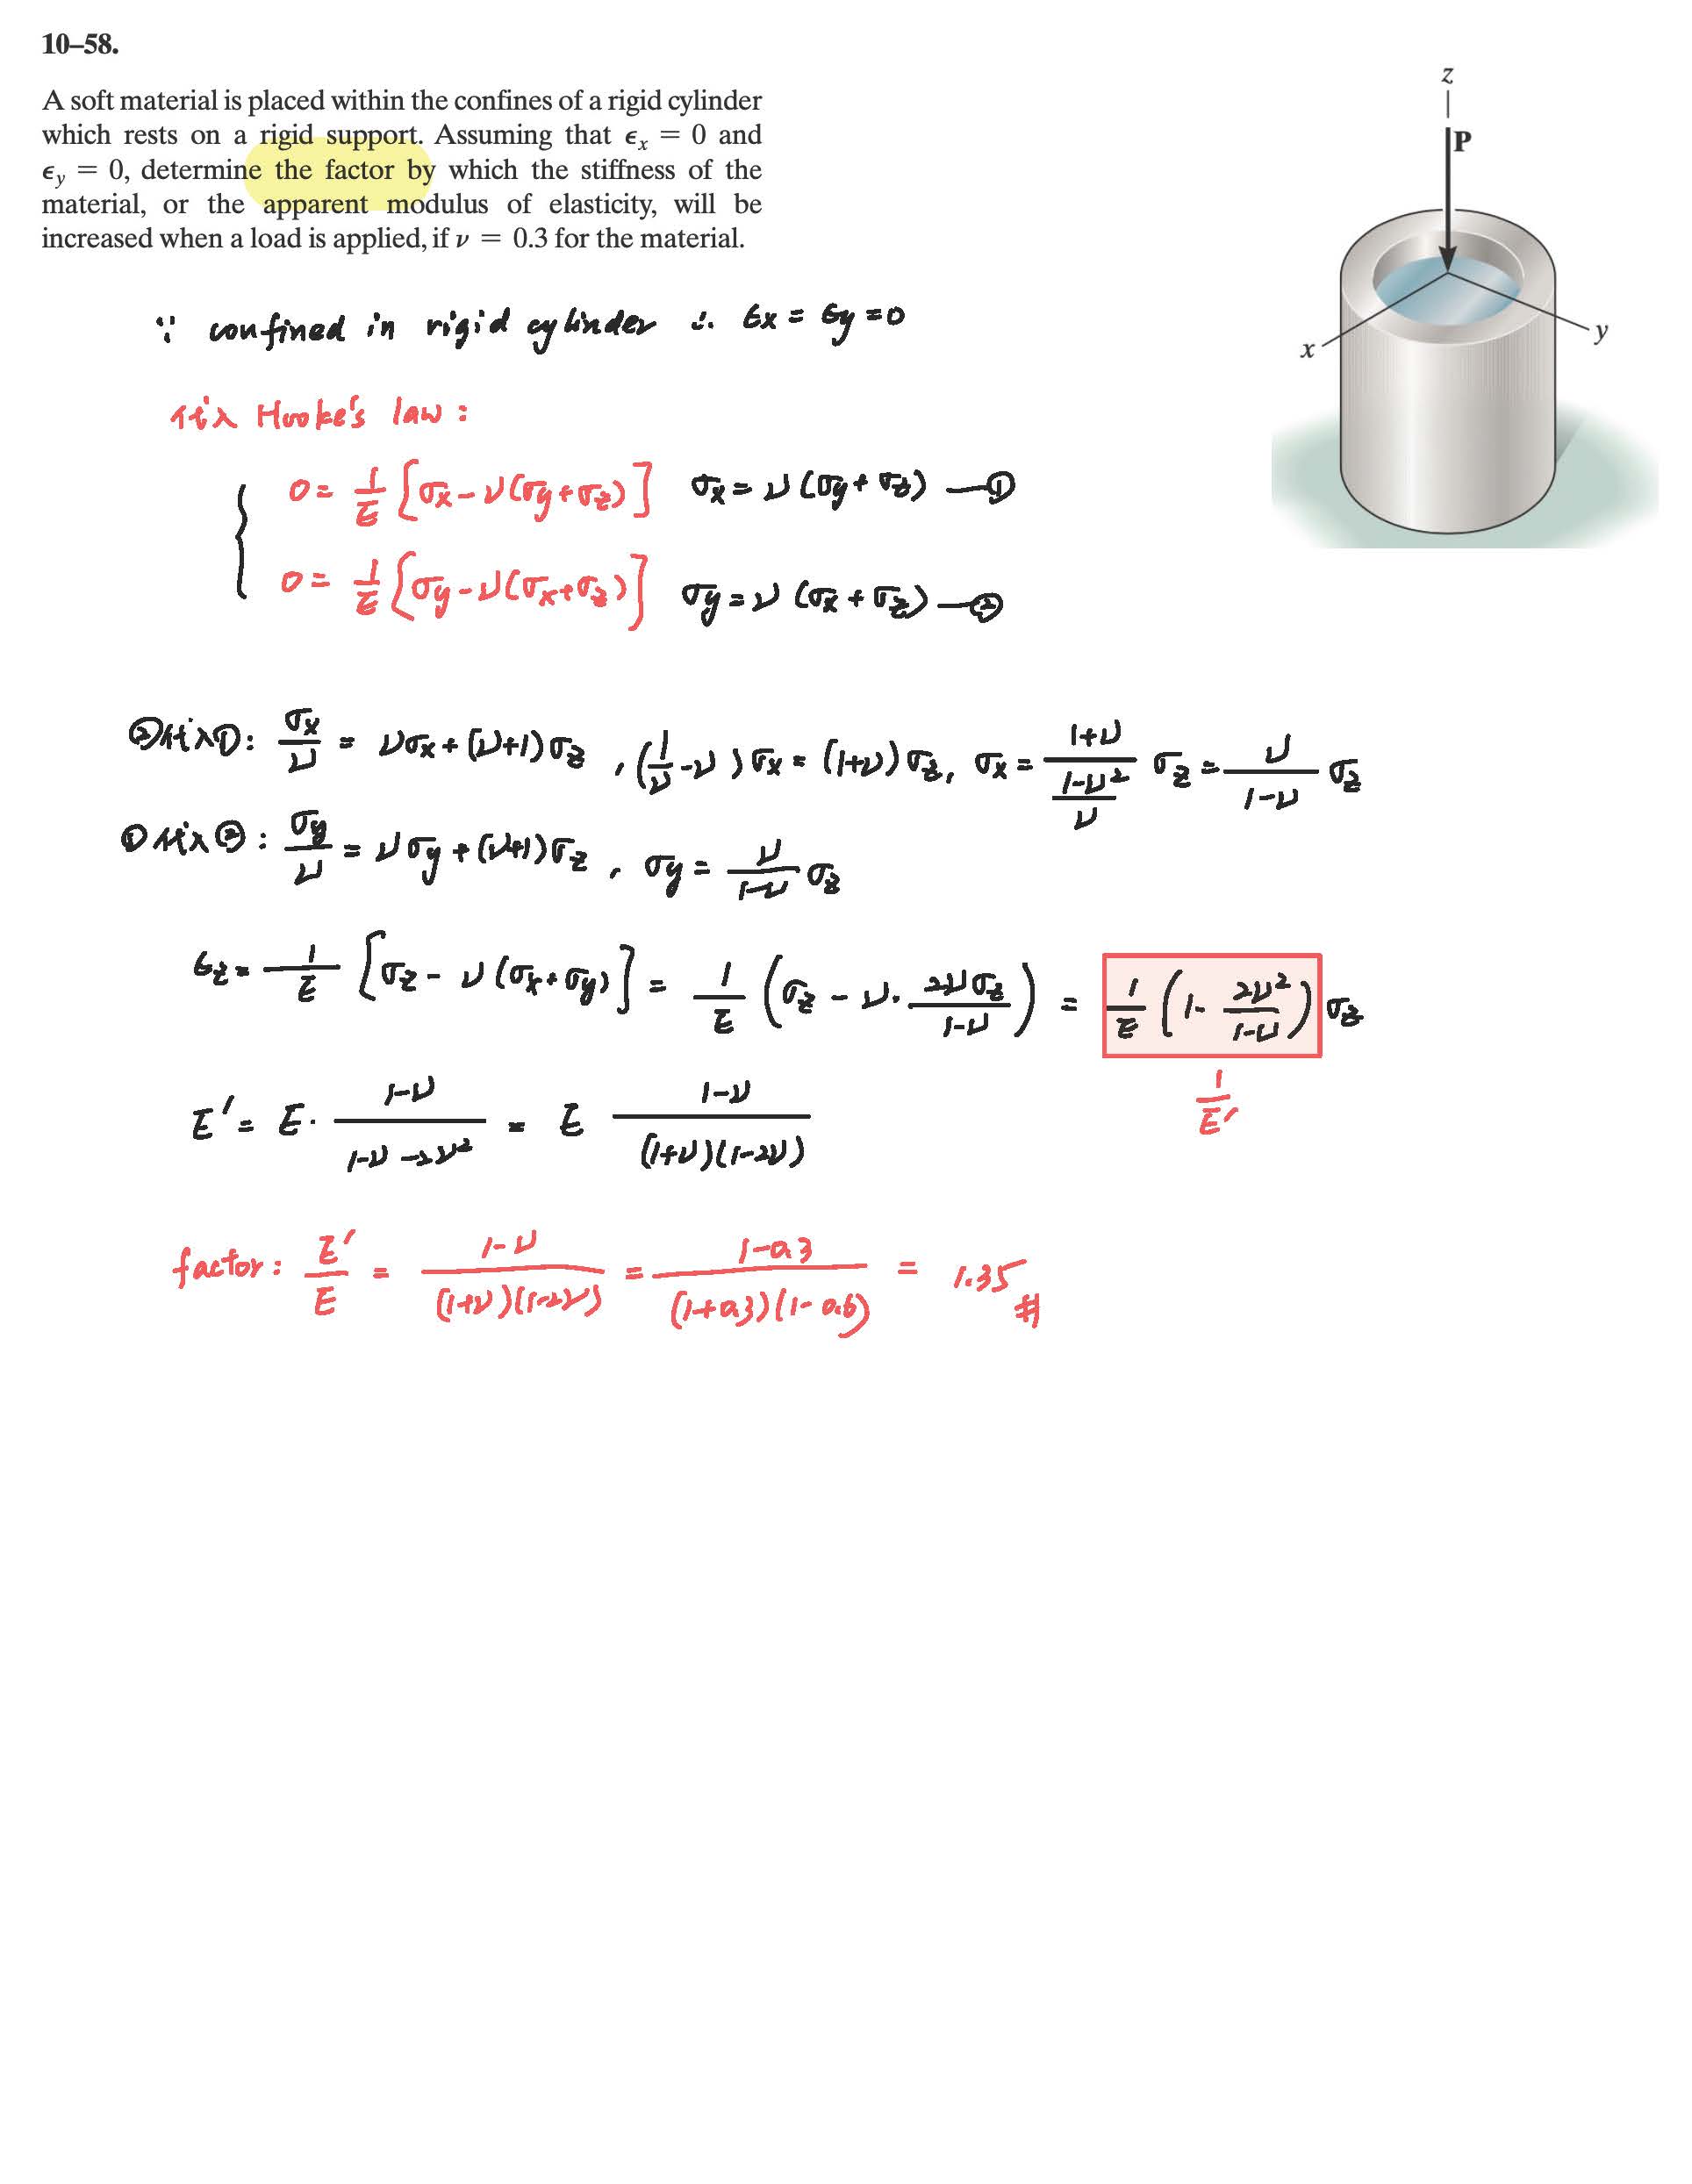 10–58.
A soft material is placed within the confines of a rigid cylinder
which rests on a rigid support. Assuming that ϵx = 0 and
ϵy = 0, determine the factor by which the stiffness of the
material, or the apparent modulus of elasticity, will be
increased when a load is applied, if ν = 0.3 for the material.
z
P
x
y
∵ confined in rigid cylinder ∴ ϵx = ϵy = 0
代入 Hooke's law :
0 = 1/E [σx − ν(σy + σz)] σx = ν (σy + σz) —①
0 = 1/E [σy − ν(σx + σz)] σy = ν (σx + σz) —②
②代入①: σx/ν = νσx + (ν+1)σz , (1/ν − ν) σx = (1+ν) σz, σx = (1+ν)/((1−ν²)/ν) σz = ν/(1−ν) σz
①代入②: σy/ν = νσy + (ν+1)σz , σy = ν/(1−ν) σz
ϵz = 1/E [σz − ν (σx + σy)] = 1/E (σz − ν · 2νσz/(1−ν)) = 1/E (1 − 2ν²/(1−ν)) σz
1/E′
E′ = E · (1−ν)/(1−ν−2ν²) = E (1−ν)/((1+ν)(1−2ν))
factor : E′/E = (1−ν)/((1+ν)(1−2ν)) = (1−0.3)/((1+0.3)(1−0.6)) = 1.35 #